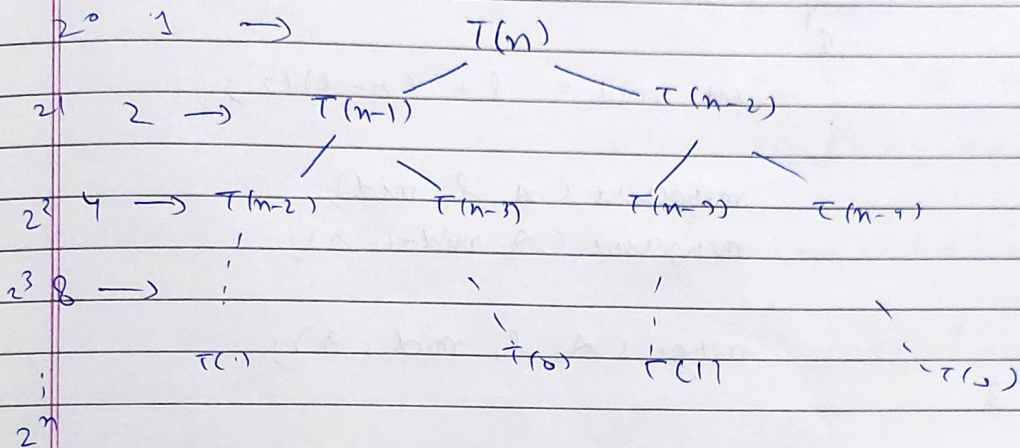 2⁰ 1 → T(n)
2¹ 2 → T(n-1) T(n-2)
2² 4 → T(n-2) T(n-3) T(n-3) T(n-4)
2³ 8 →
T(1) T(0) T(1) T(0)
2ⁿ